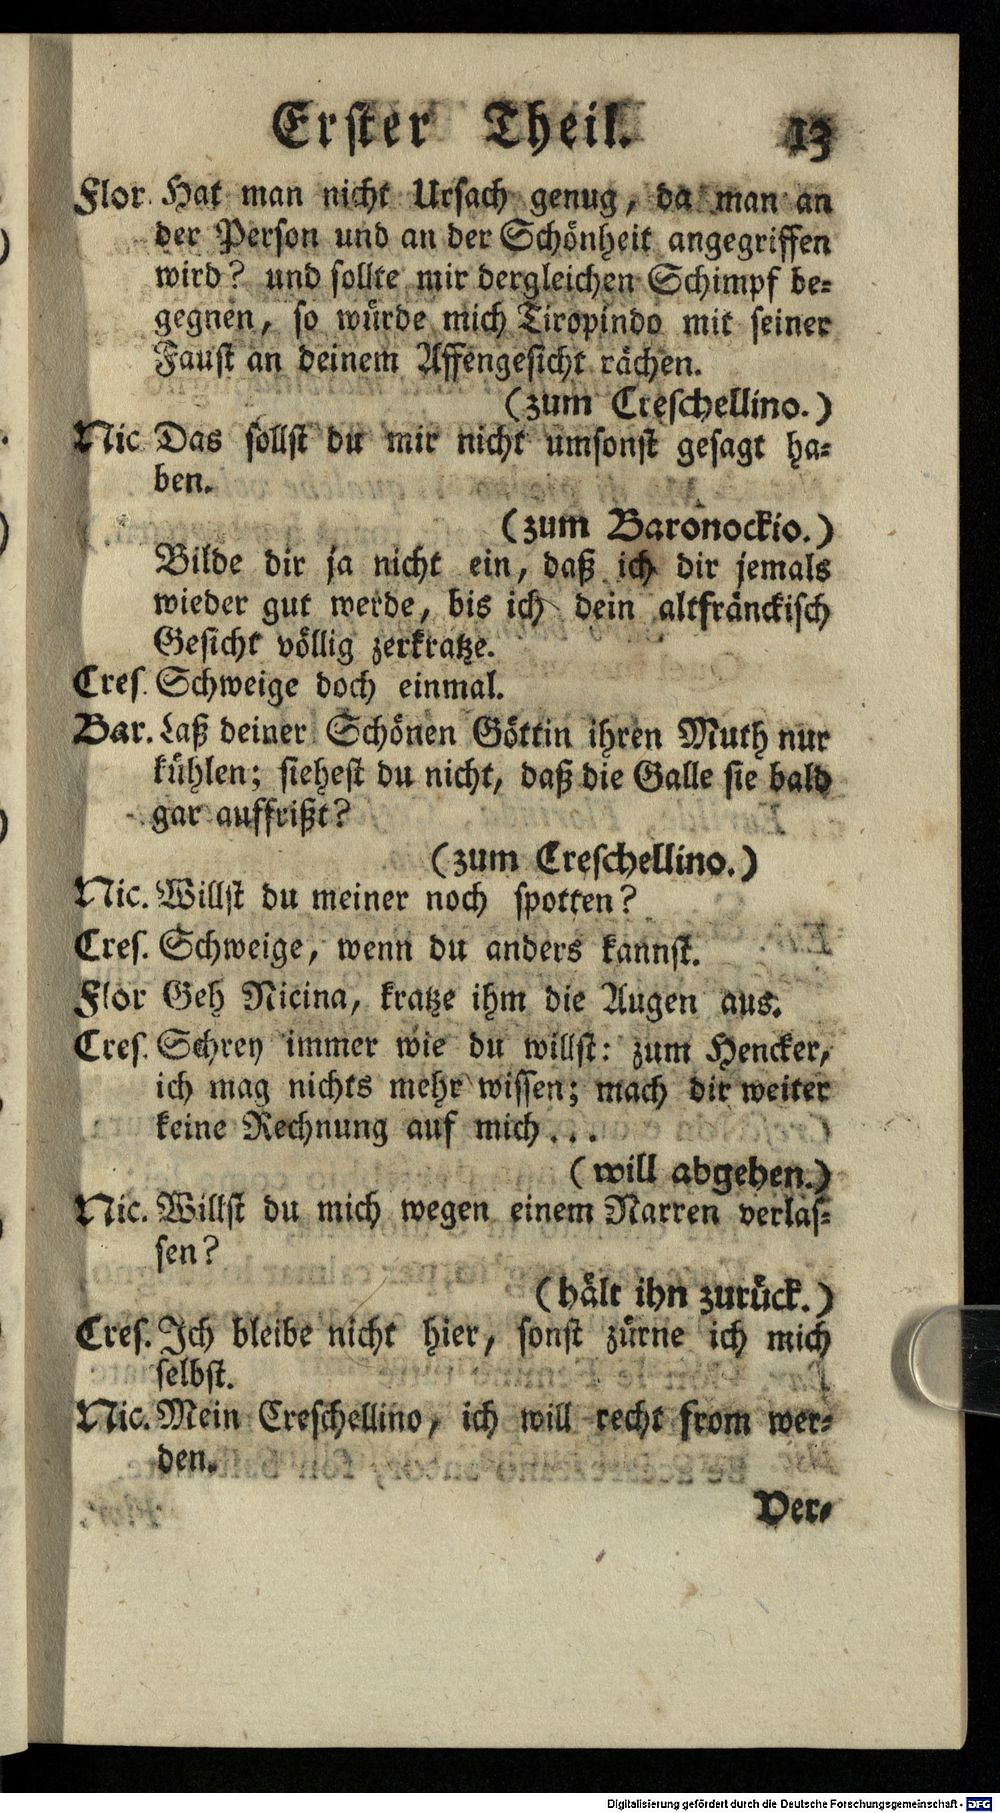 Erster Theil. 13
Flor. Hat man nicht Ursach genug, da man an
der Person und an der Schönheit angegriffen
wird? und sollte mir dergleichen Schimpf be-
gegnen, so würde mich Tiropindo mit seiner
Faust an deinem Affengesicht rächen.
(zum Creschellino.)
Nic Das sollst du mir nicht umsonst gesagt ha-
ben.
(zum Baronockio.)
Bilde dir ja nicht ein, daß ich dir jemals
wieder gut werde, bis ich dein altfränckisch
Gesicht völlig zerkratze.
Cres. Schweige doch einmal.
Bar. Laß deiner Schönen Göttin ihren Muth nur
kühlen; siehest du nicht, daß die Galle sie bald
gar auffrißt?
(zum Creschellino.)
Nic. Willst du meiner noch spotten?
Cres. Schweige, wenn du anders kannst.
Flor Geh Nicina, kratze ihm die Augen aus.
Cres. Schrey immer wie du willst: zum Hencker,
ich mag nichts mehr wissen; mach dir weiter
keine Rechnung auf mich...
(will abgehen.)
Nic. Willst du mich wegen einem Narren verlas-
sen?
(hält ihn zurück.)
Cres. Ich bleibe nicht hier, sonst zürne ich mich
selbst.
Nic. Mein Creschellino, ich will recht from wer-
den.
Ver-
Digitalisierung gefördert durch die Deutsche Forschungsgemeinschaft - DFG